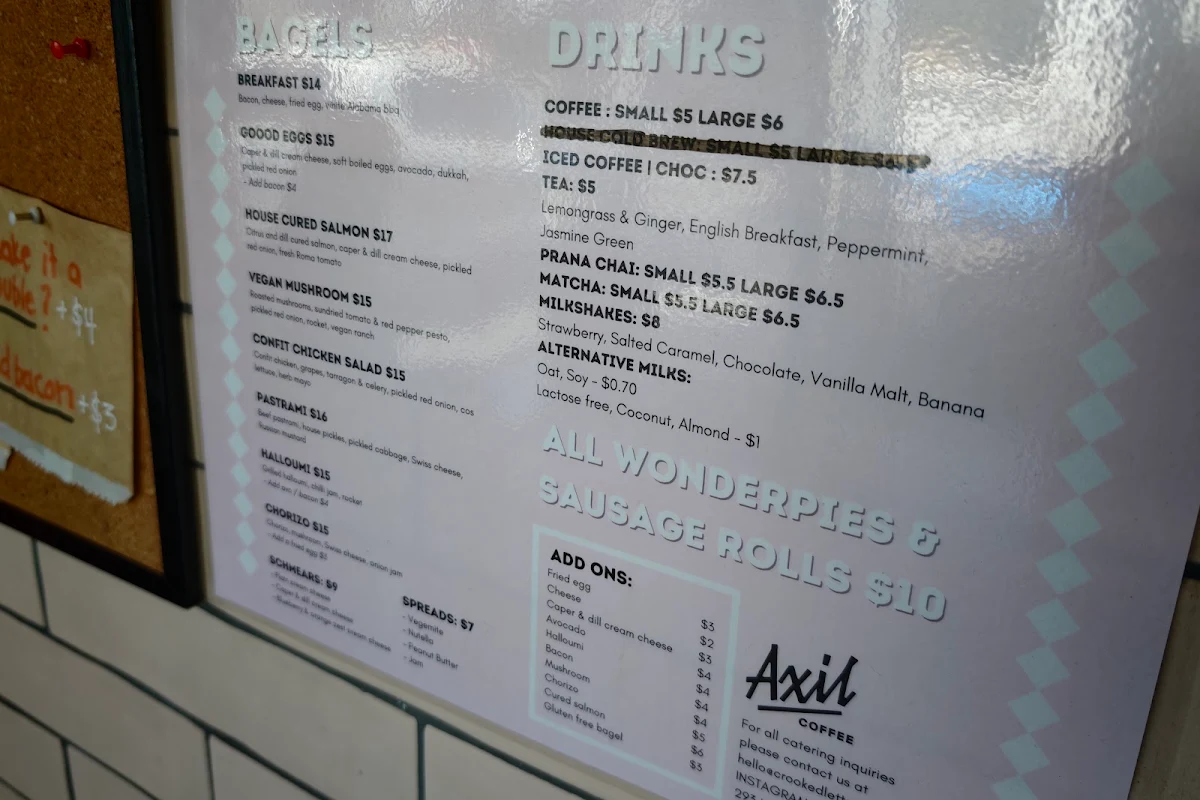 BAGELS
BREAKFAST $14
Bacon, cheese, fried egg, white Alabama bbq
GOOOD EGGS $15
Caper & dill cream cheese, soft boiled eggs, avocado, dukkah,
pickled red onion
- Add bacon $4
HOUSE CURED SALMON $17
Citrus and dill cured salmon, caper & dill cream cheese, pickled
red onion, fresh Roma tomato
VEGAN MUSHROOM $15
Roasted mushrooms, sundried tomato & red pepper pesto,
pickled red onion, rocket, vegan ranch
CONFIT CHICKEN SALAD $15
Confit chicken, grapes, tarragon & celery, pickled red onion, cos
lettuce, herb mayo
PASTRAMI $16
Beef pastrami, house pickles, pickled cabbage, Swiss cheese,
Russian mustard
HALLOUMI $15
Grilled halloumi, chilli jam, rocket
- Add avo / bacon $4
CHORIZO $15
Chorizo, mushroom, Swiss cheese, onion jam
- Add a fried egg $3
SCHMEARS: $9
- Plain cream cheese
- Caper & dill cream cheese
- Blueberry & orange zest cream cheese
SPREADS: $7
- Vegemite
- Nutella
- Peanut Butter
- Jam
DRINKS
COFFEE : SMALL $5 LARGE $6
HOUSE COLD BREW: SMALL $5 LARGE
ICED COFFEE | CHOC : $7.5
TEA: $5
Lemongrass & Ginger, English Breakfast, Peppermint,
Jasmine Green
PRANA CHAI: SMALL $5.5 LARGE $6.5
MATCHA: SMALL $5.5 LARGE $6.5
MILKSHAKES: $8
Strawberry, Salted Caramel, Chocolate, Vanilla Malt, Banana
ALTERNATIVE MILKS:
Oat, Soy - $0.70
Lactose free, Coconut, Almond - $1
ALL WONDERPIES &
SAUSAGE ROLLS $10
ADD ONS:
Fried egg $3
Cheese $2
Caper & dill cream cheese $3
Avocado $4
Halloumi $4
Bacon $4
Mushroom $4
Chorizo $5
Cured salmon $6
Gluten free bagel $3
Axil
COFFEE
For all catering inquiries
please contact us at
hello@crookedlett
INSTAGRAM
293
ake it a
uble? +$4
d bacon +$3